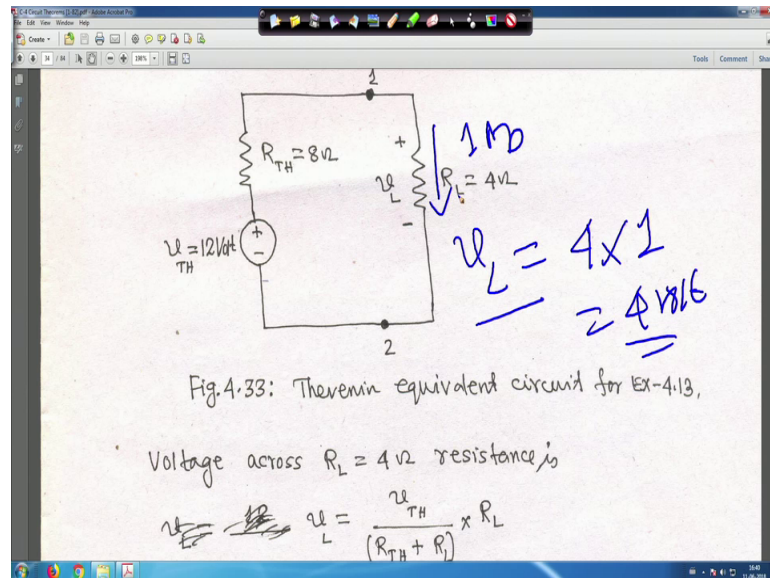 C-4 Circuit Theorems [1-82].pdf - Adobe Acrobat Pro
File Edit View Window Help
Create
34 / 84
198%
Tools Comment
1
R_TH = 8Ω
+
1
v_L
R_L = 4Ω
-
v_TH = 12 Volt
+
-
v_L = 4 × 1
= 4 volt
2
Fig. 4.33: Thevenin equivalent circuit for EX-4.13.
Voltage across R_L = 4Ω resistance is
v_L = v_TH / (R_TH + R_L) × R_L
16:40